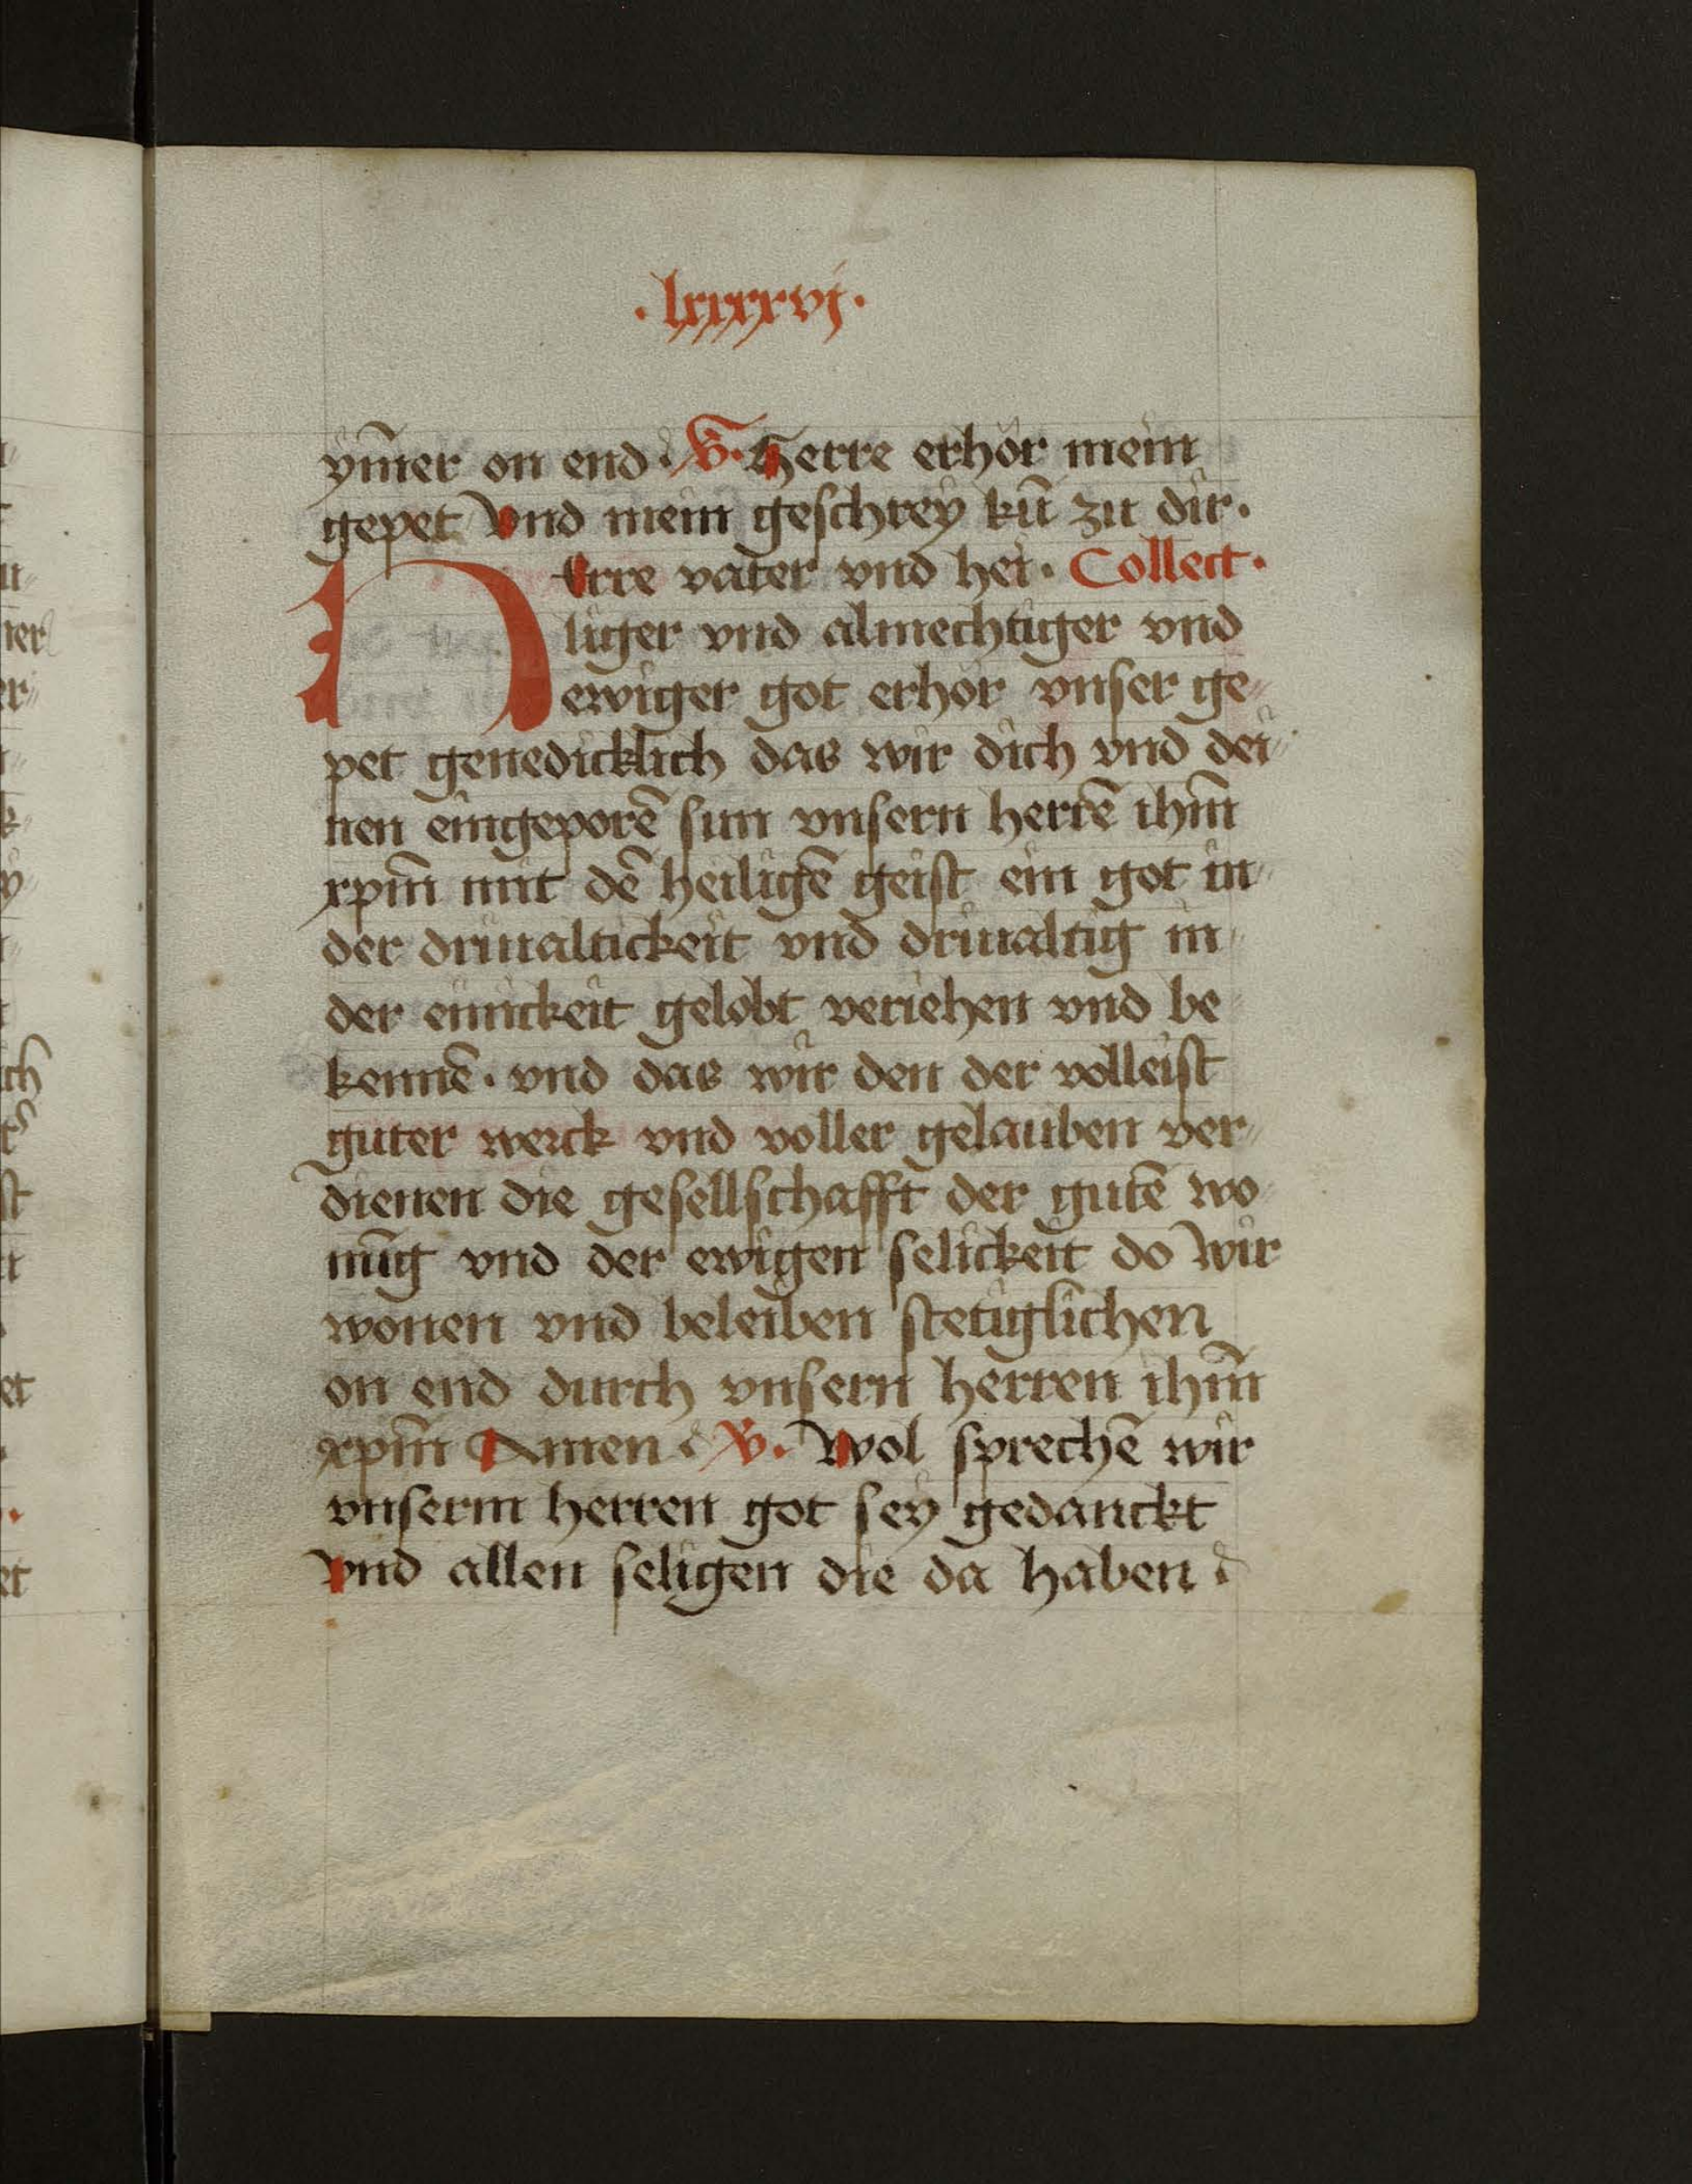 ·lxxxxvj·
ym̄er on end. V̄. Herre erhör mein
gepet Vnd mein geschrey kū zu dir.
HErre vater vnd hei. Collect.
liger vnd almechtiger vnd
ewiger got erhör vnser ge⸗
pet genedicklich das wir dich vnd dei⸗
nen eingeporē sun vnsern herrē ihm̄
xpm̄ mit dē heiligē geist ein got in
der driualtickeit vnd driualtig in
der einickeit gelobt veriehen vnd be
kennē. vnd das wir den der volleist
guter werck vnd voller gelauben ver⸗
dienen die gesellschafft der gutē wo
nūg vnd der ewigen selickeit do wir
wonen vnd beleiben stetiglichen
on end durch vnsern herren ihm̄
xpm̄ Amen. V. Wol sprechē wir
vnserm herren got sey gedanckt
Vnd allen seligen die da haben